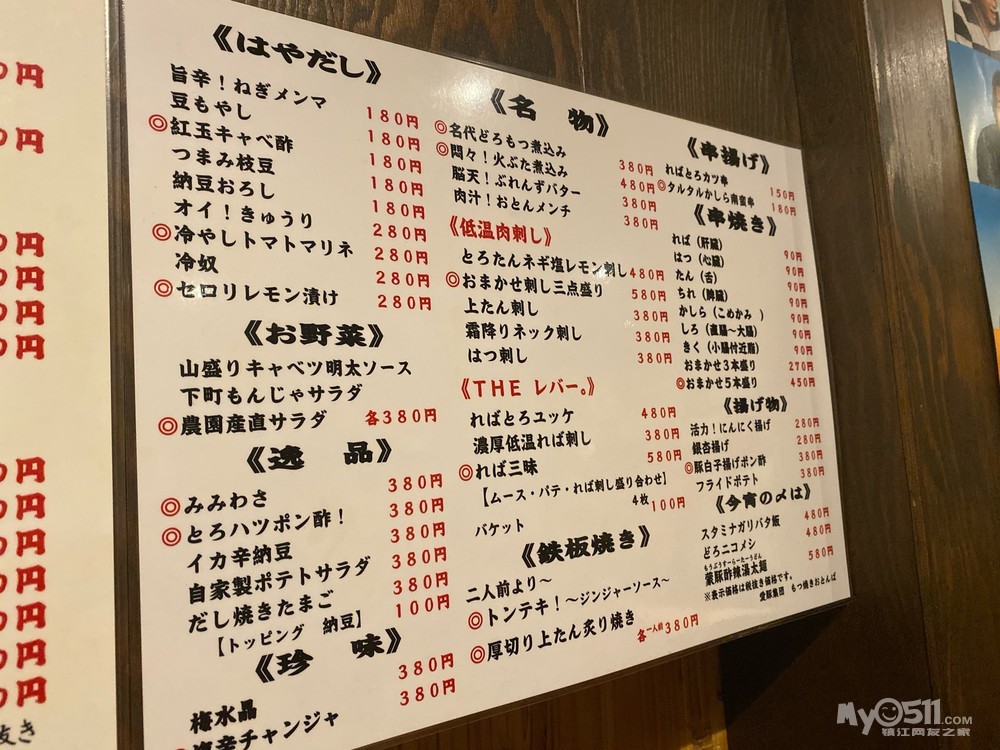 《はやだし》
旨辛！ねぎメンマ 180円
豆もやし 180円
◎紅玉キャベ酢 180円
つまみ枝豆 180円
納豆おろし 180円
オイ！きゅうり 280円
◎冷やしトマトマリネ 280円
冷奴 280円
◎セロリレモン漬け 280円
《お野菜》
山盛りキャベツ明太ソース
下町もんじゃサラダ
◎農園産直サラダ 各380円
《逸 品》
◎みみわさ 380円
◎とろハツポン酢！ 380円
イカ辛納豆 380円
自家製ポテトサラダ 380円
だし焼きたまご 380円
【トッピング 納豆】 100円
《珍 味》
梅水晶 380円
辛チャンジャ 380円
《名 物》
◎名代どろもつ煮込み 380円
◎悶々！火ぶた煮込み 480円
脳天！ぶれんずバター 380円
肉汁！おとんメンチ 380円
《低温肉刺し》
とろたんネギ塩レモン刺し 480円
◎おまかせ刺し三点盛り 580円
上たん刺し 380円
霜降りネック刺し 380円
はつ刺し 380円
《THE レバー。》
ればとろユッケ 480円
濃厚低温れば刺し 380円
◎れば三昧 580円
【ムース・パテ・れば刺し盛り合わせ】
バケット 4枚 100円
《鉄板焼き》
二人前より～
◎トンテキ！～ジンジャーソース～
◎厚切り上たん炙り焼き 各一人前380円
《串揚げ》
ればとろカツ串 150円
◎タルタルかしら南蛮串 180円
《串焼き》
れば（肝臓） 90円
はつ（心臓） 90円
たん（舌） 90円
ちれ（脾臓） 90円
かしら（こめかみ ） 90円
しろ（直腸～大腸） 90円
きく（小腸付近脂） 90円
おまかせ3本盛り 270円
◎おまかせ5本盛り 450円
《揚げ物》
活力！にんにく揚げ 280円
銀杏揚げ 280円
◎豚白子揚げポン酢 380円
フライドポテト 380円
《今宵の〆は》
スタミナガリバタ飯 480円
どろニコメシ 480円
もうぶうすーらーたーうどん
蒙豚酢辣湯太麺 580円
※表示価格は税抜き価格です。
愛豚集団 もつ焼きおとんば
円
円
円
円
円
円
円
円
円
円
円
円
円
抜き
My0511.COM
镇江网友之家